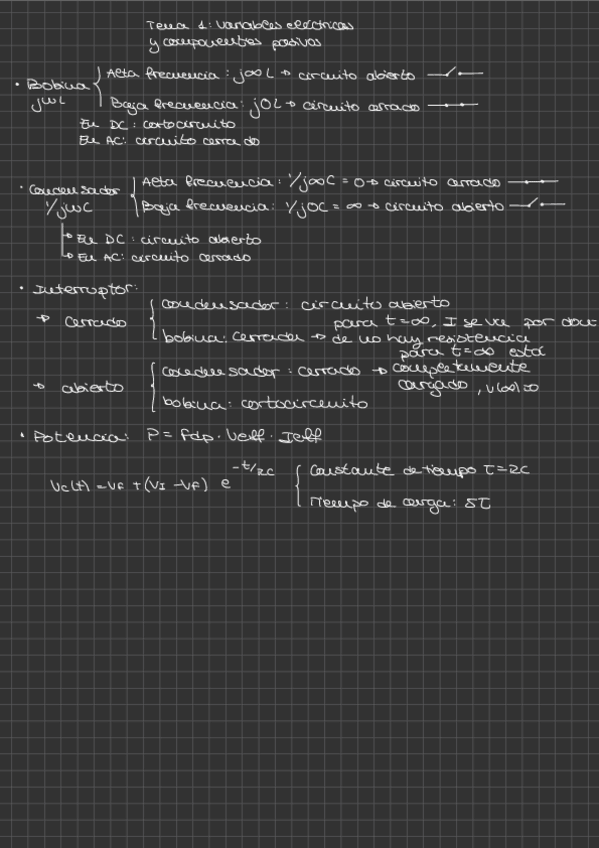 Tema 1: Variables eléctricas
y componentes pasivos
• Bobina jωL
Alta frecuencia: j∞L → circuito abierto
Baja frecuencia: j0L → circuito cerrado
En DC: cortocircuito
En AC: circuito cerrado
• Condensador 1/jωC
Alta frecuencia: 1/j∞C = 0 → circuito cerrado
Baja frecuencia: 1/j0C = ∞ → circuito abierto
→ En DC: circuito abierto
→ En AC: circuito cerrado
• Interruptor:
→ cerrado
condensador: circuito abierto
para t=∞, I se va por don
bobina: cerrada → de no hay resistencia
para t=∞ está
→ abierto
condensador: cerrado → completamente
cargado, v(∞)=0
bobina: cortocircuito
• Potencia: P = fdp · Veff · Ieff
Vc(t) = VF + (VI - VF) e^-t/RC
Constante de tiempo τ=RC
Tiempo de carga: 5τ